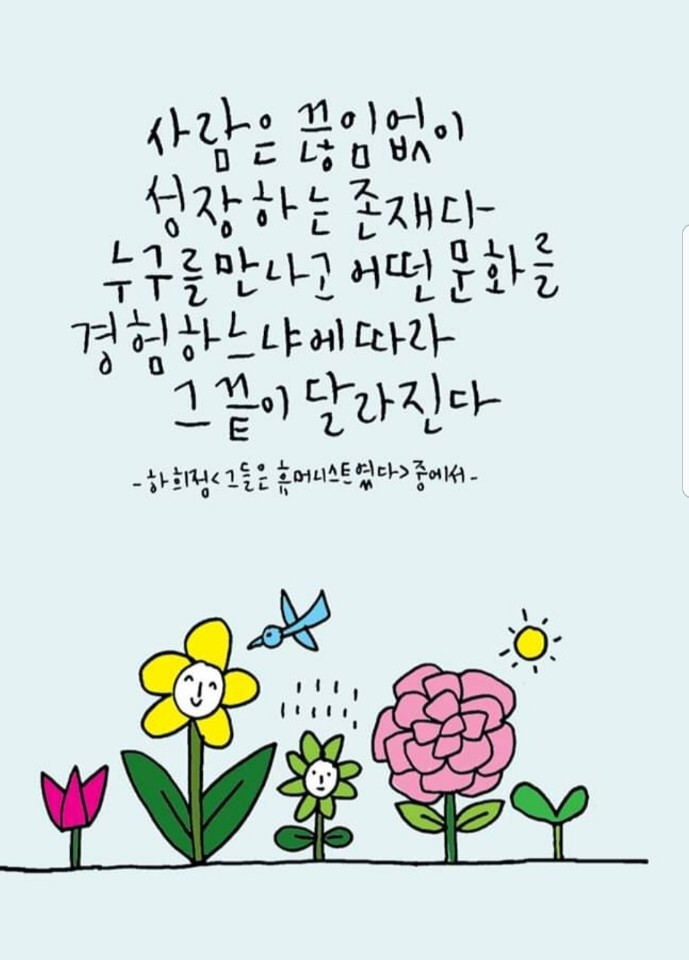 사람은 끊임없이
성장하는 존재다
누구를 만나고 어떤 문화를
경험하느냐에 따라
그 끝이 달라진다
-하희정<그들은 휴머니스트였다>중에서-